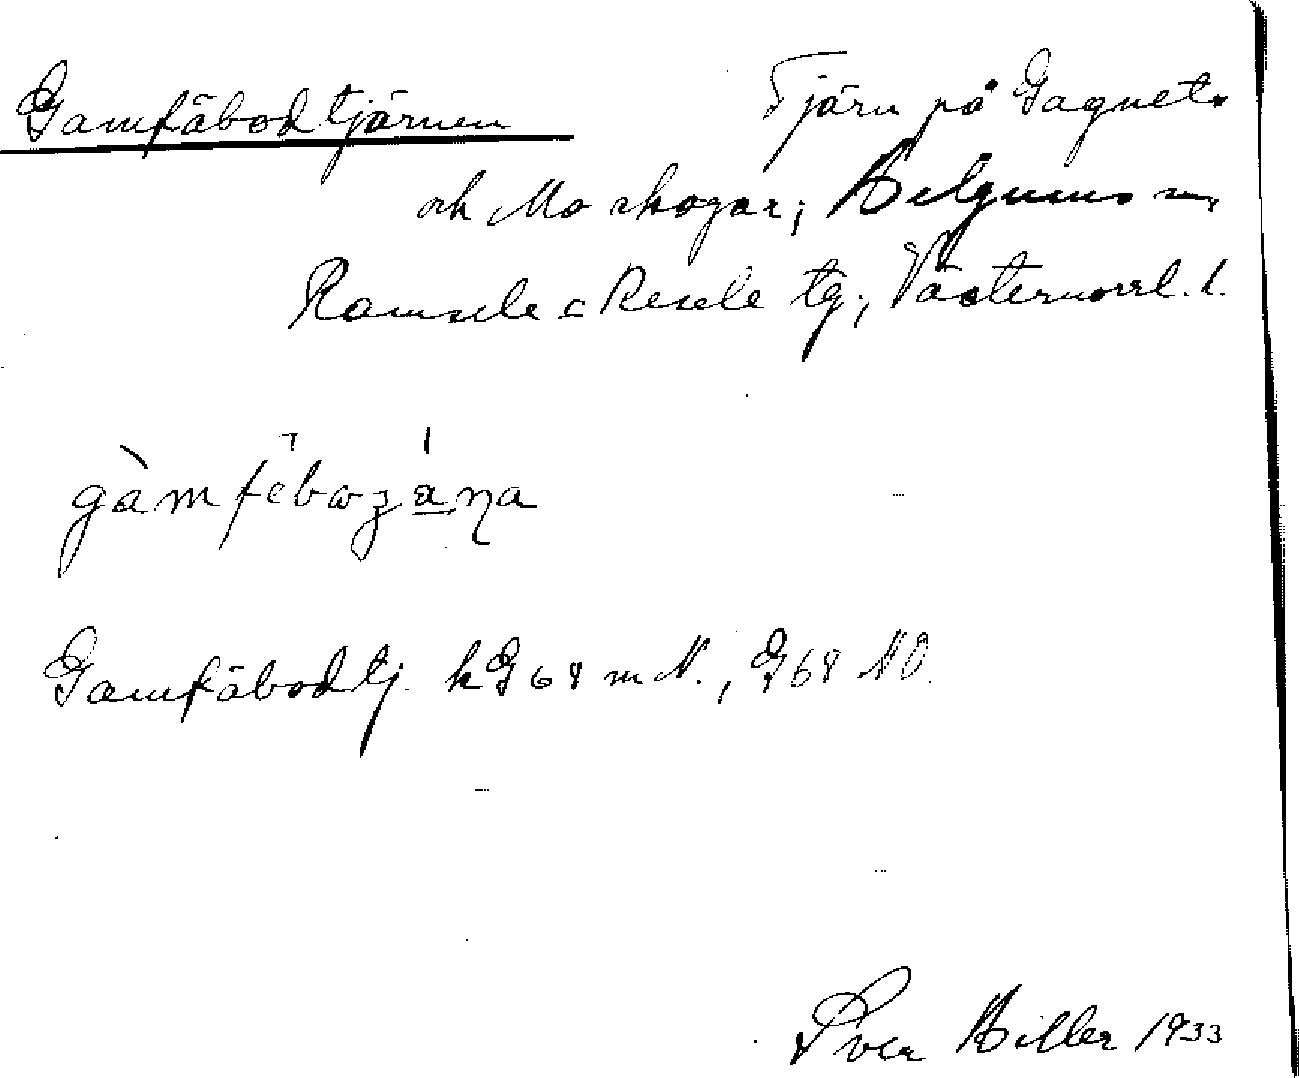 Gamfäbodtjärnen
Tjärn på Gagnets
och Mo skogar; Helgums sn,
Ramsele o Resele tg; Västernorrl. l.
gàmfèbωʒána
Gamfäbodtj. kG 68 m N., G 68 NO.
Sven Hiller 1933